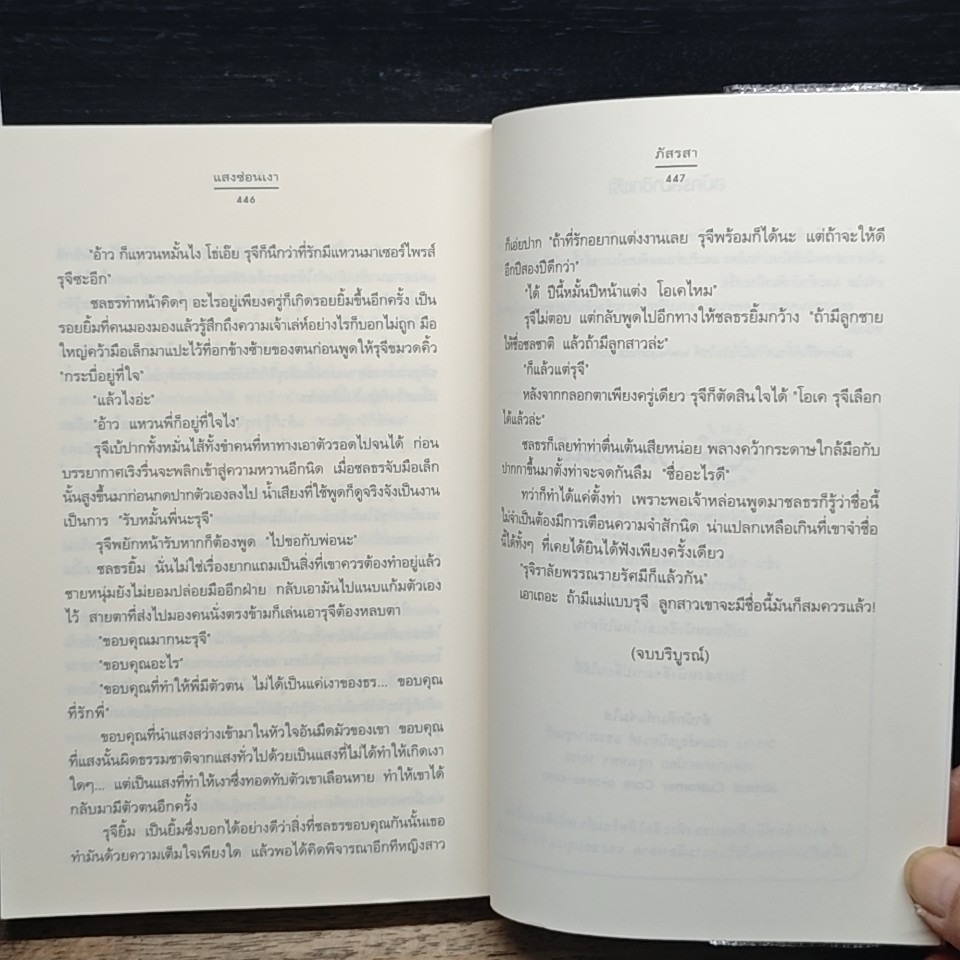 แสงซ่อนเงา
446
"อ้าว ก็แหวนหมั้นไง โธ่เอ๊ย รุจีก็นึกว่าที่รักมีแหวนมาเซอร์ไพรส์
รุจีซะอีก"
ชลธรทำหน้าคิดๆ อะไรอยู่เพียงครู่ก็เกิดรอยยิ้มขึ้นอีกครั้ง เป็น
รอยยิ้มที่คนมองมองแล้วรู้สึกถึงความเจ้าเล่ห์อย่างไรก็บอกไม่ถูก มือ
ใหญ่คว้ามือเล็กมาแปะไว้ที่อกข้างซ้ายของตนก่อนพูดให้รุจีขมวดคิ้ว
"กระบี่อยู่ที่ใจ"
"แล้วไงอ่ะ"
"อ้าว แหวนพี่ก็อยู่ที่ใจไง"
รุจีเบ้ปากทั้งหมั่นไส้ทั้งขำคนที่หาทางเอาตัวรอดไปจนได้ ก่อน
บรรยากาศเริงรื่นจะพลิกเข้าสู่ความหวานอีกนิด เมื่อชลธรจับมือเล็ก
นั้นสูงขึ้นมาก่อนกดปากตัวเองลงไป น้ำเสียงที่ใช้พูดก็ดูจริงจังเป็นงาน
เป็นการ "รับหมั้นพี่นะรุจี"
รุจีพยักหน้ารับหากก็ต้องพูด "ไปขอกับพ่อนะ"
ชลธรยิ้ม นั่นไม่ใช่เรื่องยากแถมเป็นสิ่งที่เขาควรต้องทำอยู่แล้ว
ชายหนุ่มยังไม่ยอมปล่อยมืออีกฝ่าย กลับเอามันไปแนบแก้มตัวเอง
ไว้ สายตาที่ส่งไปมองคนนั่งตรงข้ามก็เล่นเอารุจีต้องหลบตา
"ขอบคุณมากนะรุจี"
"ขอบคุณอะไร"
"ขอบคุณที่ทำให้พี่มีตัวตน ไม่ได้เป็นแค่เงาของธร... ขอบคุณ
ที่รักพี่"
ขอบคุณที่นำแสงสว่างเข้ามาในหัวใจอันมืดมัวของเขา ขอบคุณ
ที่แสงนั้นผิดธรรมชาติจากแสงทั่วไปด้วยเป็นแสงที่ไม่ได้ทำให้เกิดเงา
ใดๆ... แต่เป็นแสงที่ทำให้เงาซึ่งทอดทับตัวเขาเลือนหาย ทำให้เขาได้
กลับมามีตัวตนอีกครั้ง
รุจียิ้ม เป็นยิ้มซึ่งบอกได้อย่างดีว่าสิ่งที่ชลธรขอบคุณกันนั้นเธอ
ทำมันด้วยความเต็มใจเพียงใด แล้วพอได้คิดพิจารณาอีกทีหญิงสาว
ภัสรสา
447
ก็เอ่ยปาก "ถ้าที่รักอยากแต่งงานเลย รุจีพร้อมก็ได้นะ แต่ถ้าจะให้ดี
อีกปีสองปีดีกว่า"
"ได้ ปีนี้หมั้นปีหน้าแต่ง โอเคไหม"
รุจีไม่ตอบ แต่กลับพูดไปอีกทางให้ชลธรยิ้มกว้าง "ถ้ามีลูกชาย
ให้ชื่อชลชาติ แล้วถ้ามีลูกสาวล่ะ"
"ก็แล้วแต่รุจี"
หลังจากกลอกตาเพียงครู่เดียว รุจีก็ตัดสินใจได้ "โอเค รุจีเลือก
ได้แล้วล่ะ"
ชลธรก็เลยทำท่าตื่นเต้นเสียหน่อย พลางคว้ากระดาษใกล้มือกับ
ปากกาขึ้นมาตั้งท่าจะจดกันลืม "ชื่ออะไรดี"
ทว่าก็ทำได้แค่ตั้งท่า เพราะพอเจ้าหล่อนพูดมาชลธรก็รู้ว่าชื่อนี้
ไม่จำเป็นต้องมีการเตือนความจำสักนิด น่าแปลกเหลือเกินที่เขาจำชื่อ
นี้ได้ทั้งๆ ที่เคยได้ยินได้ฟังเพียงครั้งเดียว
"รุจิราลัยพรรณรายรัศมีก็แล้วกัน"
เอาเถอะ ถ้ามีแม่แบบรุจี ลูกสาวเขาจะมีชื่อนี้มันก็สมควรแล้ว!
(จบบริบูรณ์)